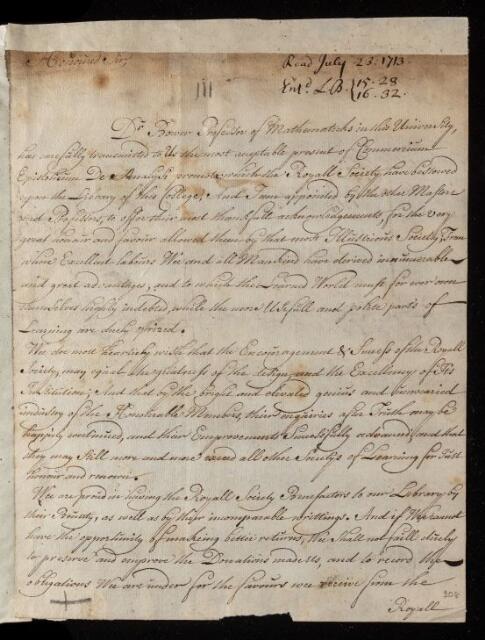 Honoured Sir,
Read July 23. 1713.
Ent.d L.B. 15. 28
16. 32.
Dr. Bower Professor of Mathematicks in this University,
has carefully transmitted to Us the most acceptable present of Commercium
Epistolicum De Analysi promota which the Royall Society have bestowed
upon the Library of this College; And I am appointed by the other Masters
and Professors, to offer their most thankfull acknowledgements for the very
great honour and favour allowed them by that most Illustrious Society, From
whose Excellent labours We and all Mankind have derived innumerable
and great advantages, and to which the Learned World must for ever own
themselves highly indebted, while the more Usefull and polite parts of
Learning are duely prized.
We are most heartily wish that the Encouragement & Success of the Royall
Society, may equal the greatness of the design, and the Excellency of Its
Institution; And that by the bright and elevated genius and unwearied
industry of the Honorable Members, their enquiries after Truth may be
happily continued, and their Emprovements Successfully advanced, and that
they may still more and more exceed all other Societys of Learning for Just
honour and renown.
We are proud in having the Royall Society Benefactors to our Library by
their Bounty, as well as by their incomparable writtings. And if We cannot
have the opportunity of making better returns, We Shall not faill duely
to preserve and emprove the Donations made Us, and to record the
obligations We are under for the favours wee receive from the
Royall
208